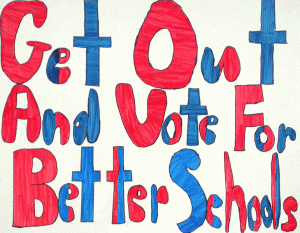 Get Out
And Vote For
Better Schools